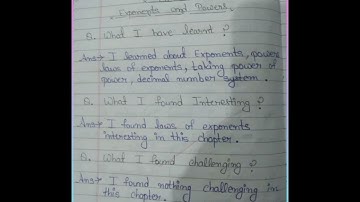 Exponents and Powers
Q. What I have learnt ?
Ans→ I learned about Exponents, power
laws of exponents, taking power of
power, decimal number system.
Q. What I found Interesting ?
Ans→ I found laws of exponents
interesting in this chapter.
Q. What I found challenging ?
Ans→ I found nothing challenging in
this chapter.